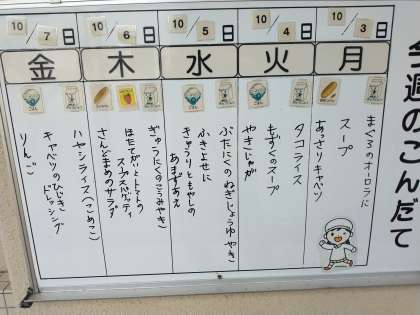 今週のこんだて
10/3日
月
まぐろのオーロラに
スープ
あっさりキャベツ
10/4日
火
タコライス
もずくのスープ
やきじゃが
10/5日
水
ぶたにくのねぎじょうゆやき
ふきよせに
きゅうりともやしの
あまずあえ
10/6日
木
ぎゅうにくのこうみやき
ほたてがいとトマトの
スープスパゲッティ
さんどまめのサラダ
10/7日
金
ハヤシライス(こめこ)
キャベツのひじき
ドレッシング
りんご